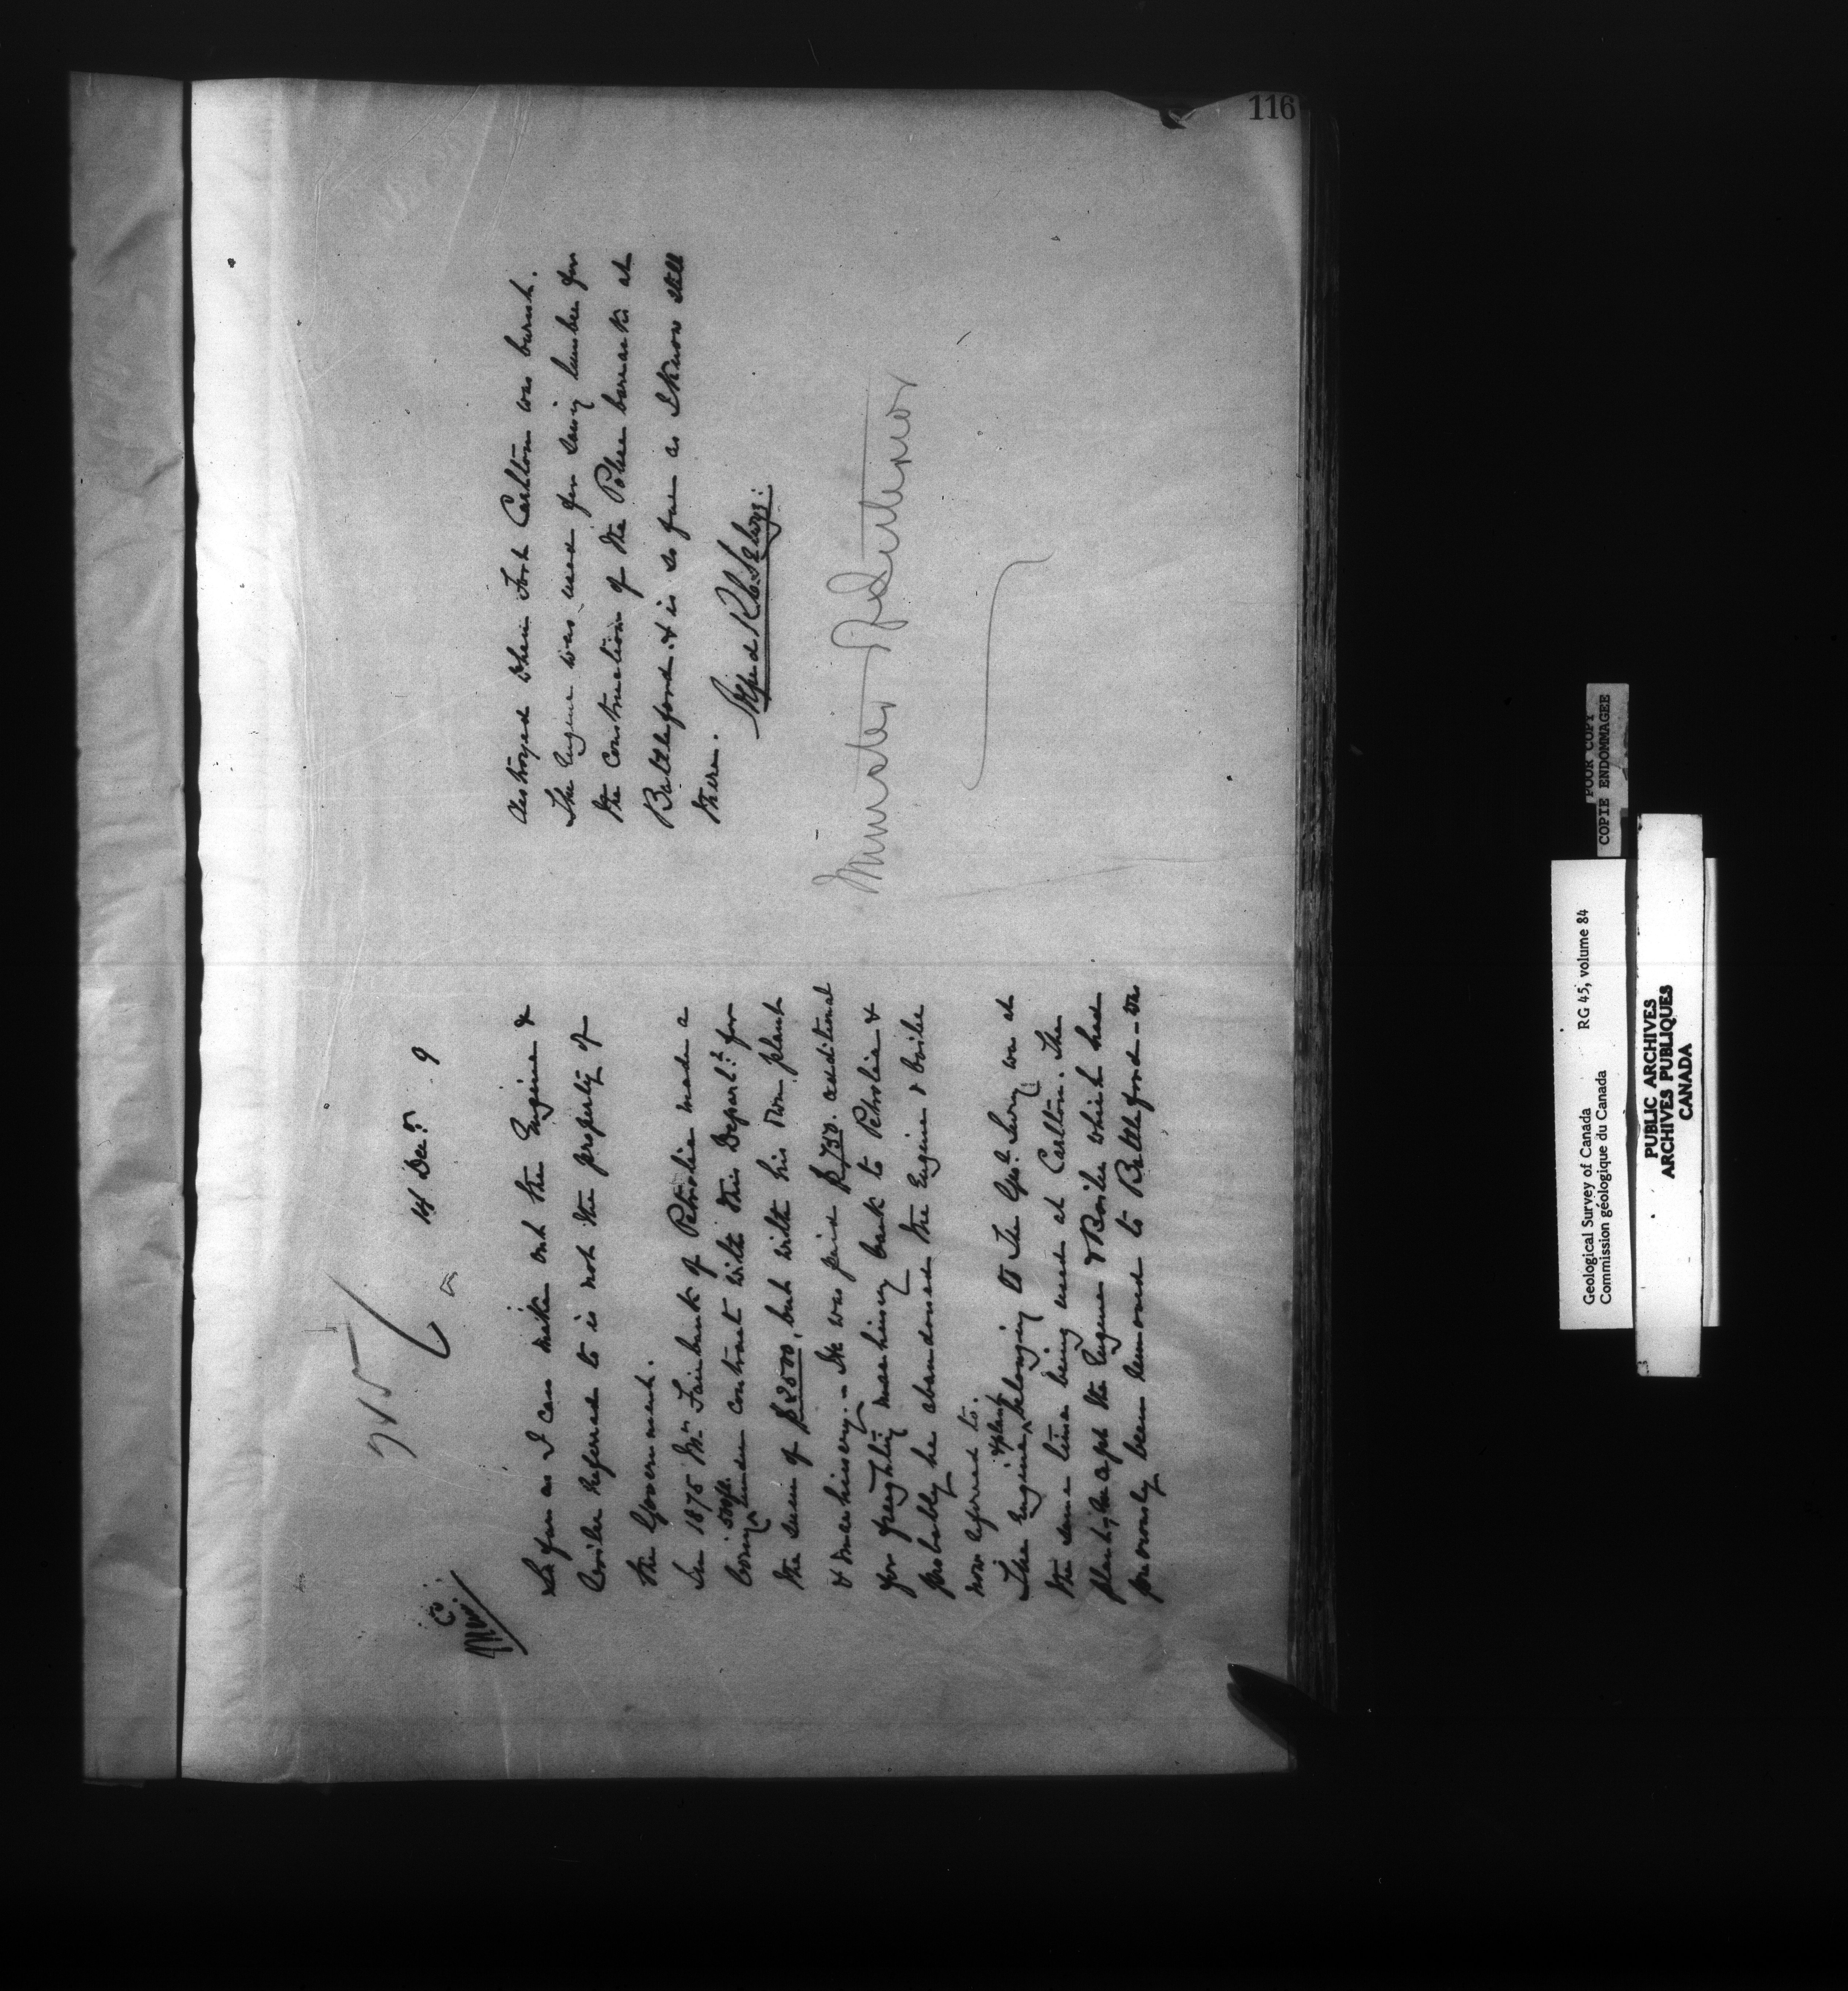 116
14 Decr. 9
So far as I can make out the Engine &
boiler referred to is not the property of
the Government.
In 1875 Mr. Fairbank of Petrolia made a
boring 500 ft. under contract with this Departt. for
the sum of $2500, but with his own plant
& machinery. - He was paid $750. additional
for freighting machinery back to Petrolia &
probably he abandoned the Engine & boiler
now referred to.
The Engine & plant belonging to the Geol. Survy was at
the same time being used at Carlton. The
plant, except the Engine & Boiler which had
previously been removed to Battleford - was
destroyed when Fort Carlton was burnt.
The Engine was used for sawing lumber for
the construction of the Police barracks at
Battleford & is so far as I know still
there.
Signed
Minister of Interior
Geological Survey of Canada RG 45, volume 84
Commission géologique du Canada
POOR COPY
COPIE ENDOMMAGEE
PUBLIC ARCHIVES
ARCHIVES PUBLIQUES
CANADA